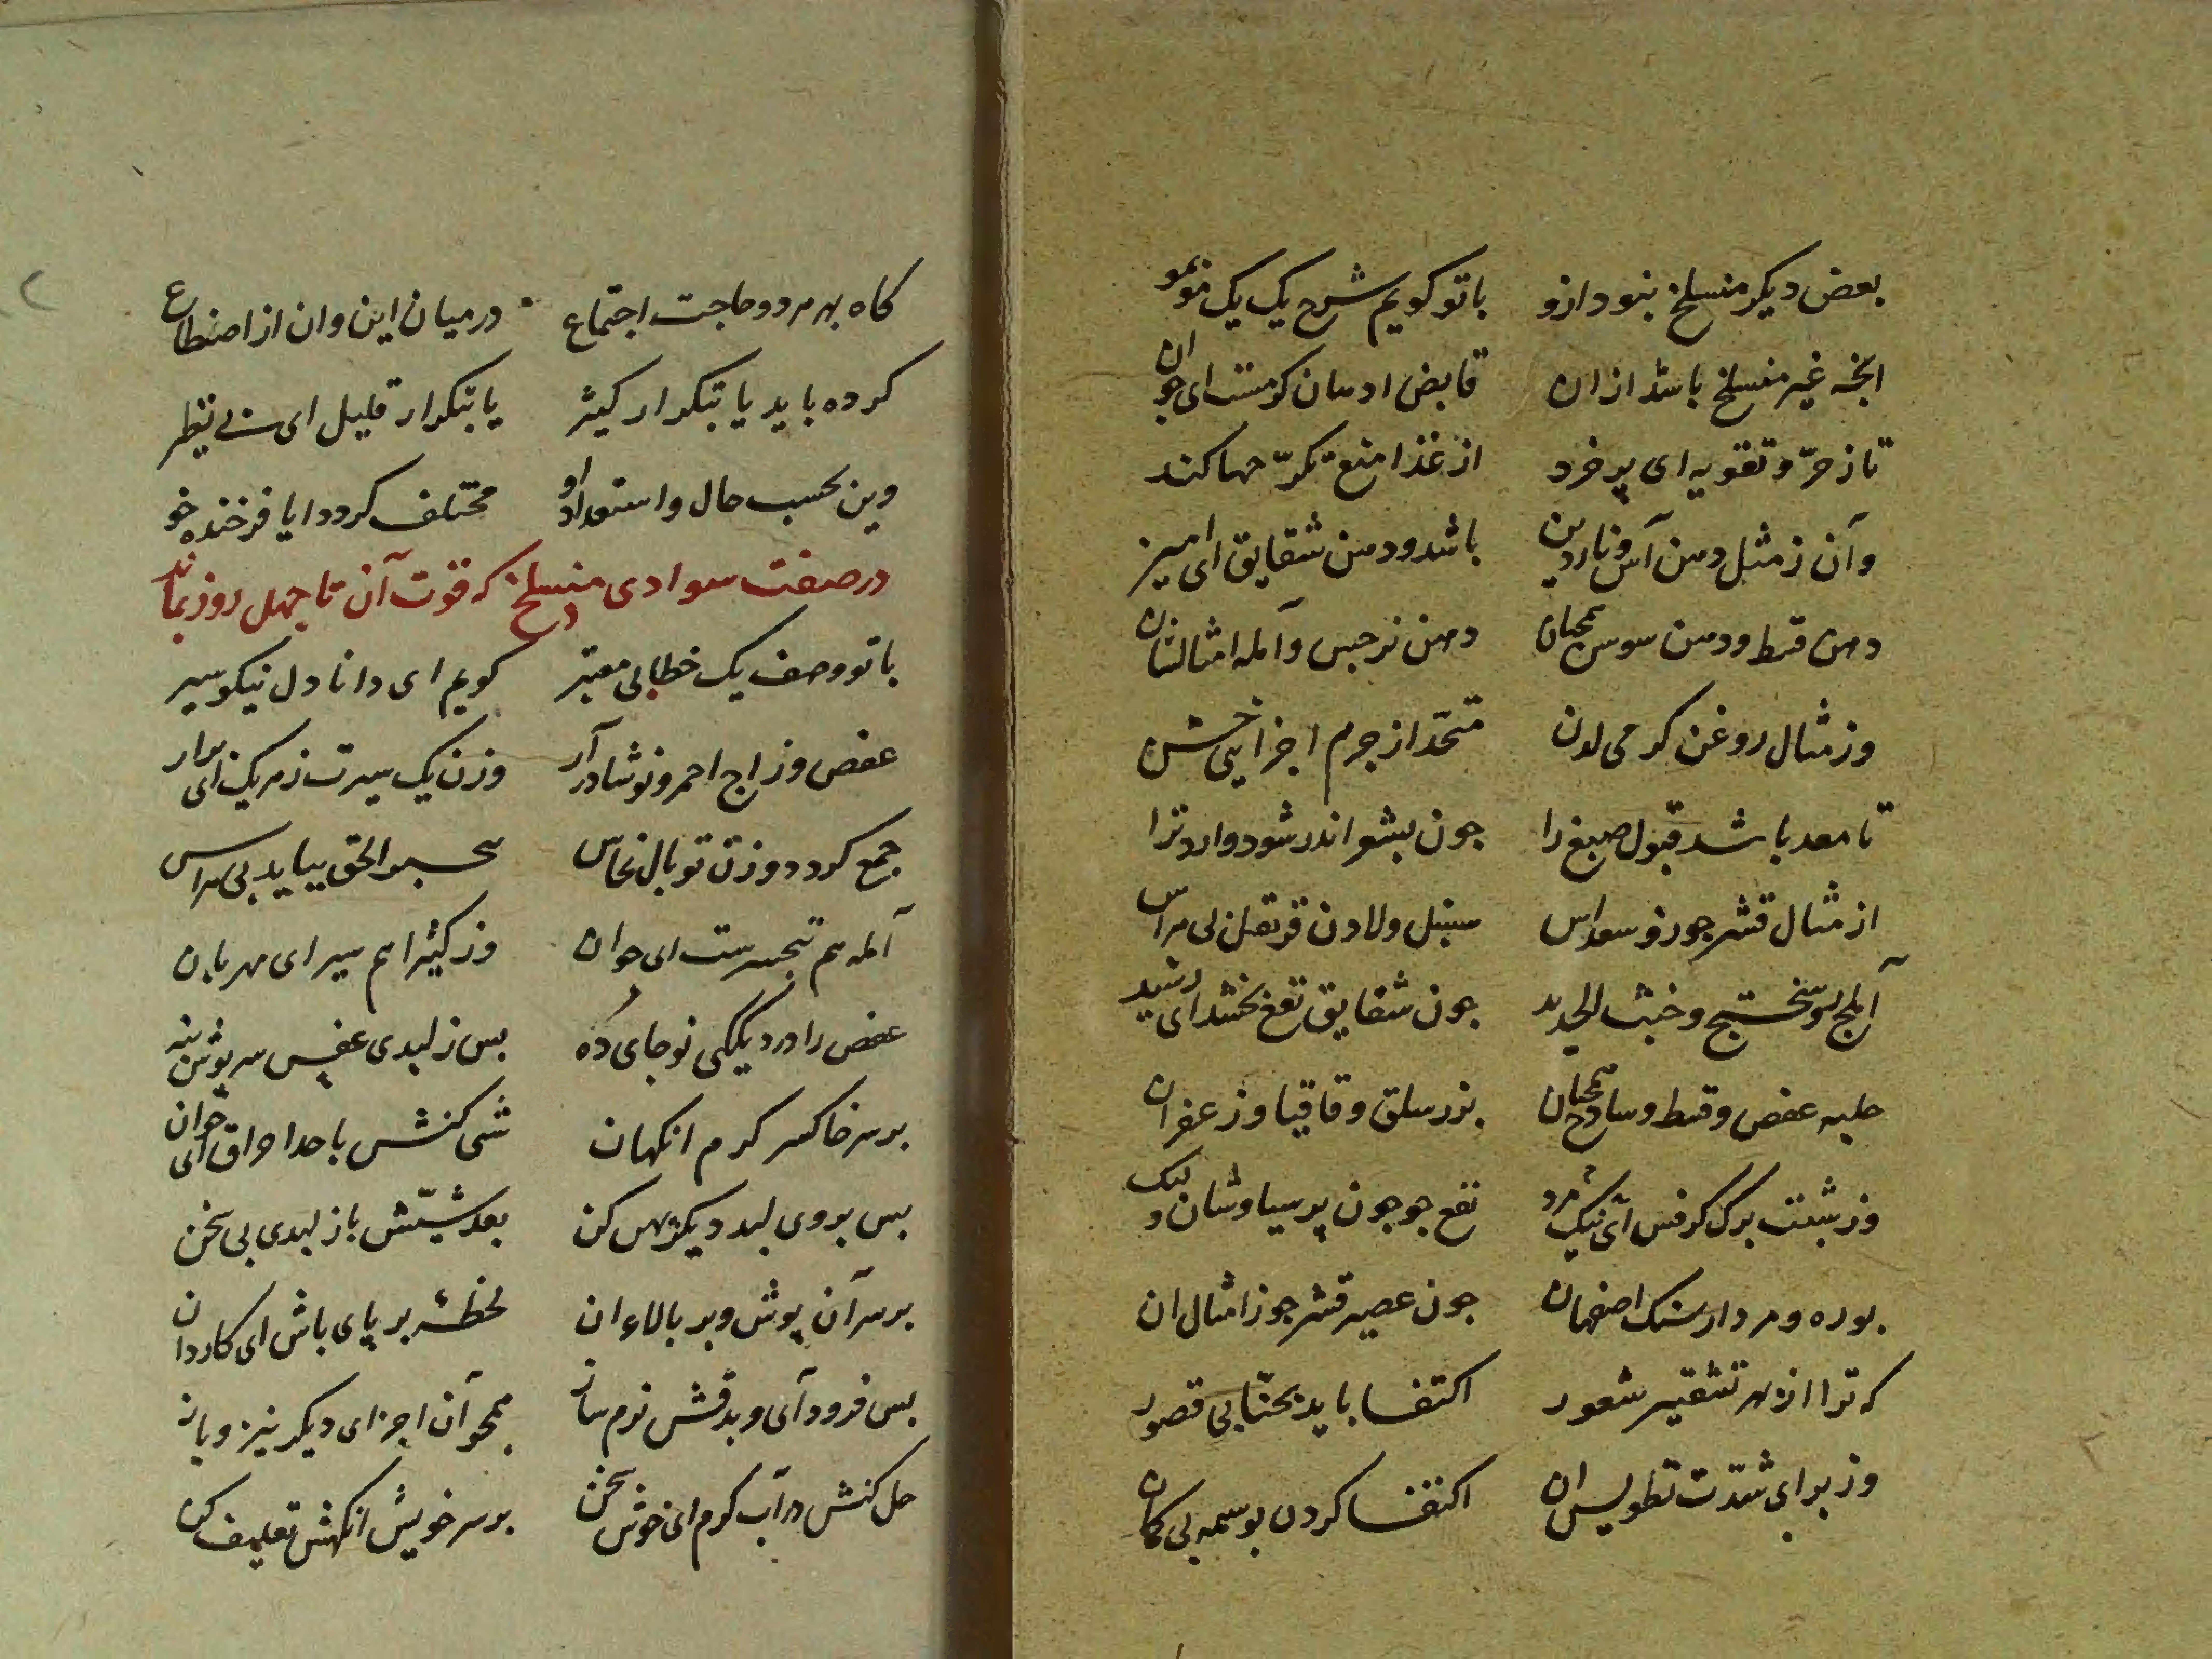 بعض دیکر منسلخ بنود ازو باتو کویم شرح یک یک موبمو
انچه غیر منسلخ باشد ازان قابض ادهان کومست ای جوان
تا ز حرّ و تقویه ای پر خرد از غذا منع تکرّ حها کند
وآن ز مثل دهن آس و ناردین باشد و دهن شقایق ای امیر
دهن قسط و دهن سوس همچنان دهن نرجس وآمله امثالشان
وز مثال روغن کرمی لدن متحّد از جرم اجزایی خشن
تا معد باشد قبول صبغ را جون بشعر اندر شود وارد ترا
از مثال قشر جوز و سعد اس سنبل ولادن قرنفل بی هراس
آبلج بوسختج وخبث الحدید جون شقایق نفع بخشد ای رشید
حلبه عفص وقسط وساذج همچنان بزر سلق وقاقیا وزعفران
وز شبت برک کرفس ای نیک مرد نفع جو جون پرسیاوشان و
بوره ومردارسنک اصفهان جون عصیر قشر جوز امثال ان
که ترا از بهر تشقیر شعور اکتفا باید بحنّا بی قصور
وز برای شدّت تطویس ان اکتفا کردن بوسمه بی کمان
کاه بهر هر دو حاجت اجتماع درمیان این وان از اصنطاع
کرده باید یا تبکرار کثیر یا تبکرار قلیل ای بی نظیر
وین بحسب حال واستعداد او مختلف کردد ایا فرخنده خو
درصفت سوادی منسلخ که قوت آن تا جهل روز بماند
باتو وصف یک خطابی معتبر کویم ای دانا دل نیکو سیر
عفص وزاج احمر ونوشادر آر وزن یک سیرت ز هر یک ای برار
جمع کردد وزن توبال نحاس بی هراس
آمله هم پنجسیرست ای جوان وز کثیرا هم سیر ای مهربان
عفص را در دیککی نو جای ده بس ز لبدی عفص سرپوش بنه
برسر خاکستر کرم انکهان شی کنش با حد احراق ای جوان
بس بروی لبد دیکر پهن کن بعد شیّش باز لبدی بی سخن
برسر آن پوش وبر بالاء ان لحظهٔ بر پای باش ای کاردان
بس فرود آی وبدقش نرم ساز همجو آن اجزای دیکر نیز وباز
حل کنش در آب کرم ای خوش سخن برسر خویش انکهش تعلیف کن